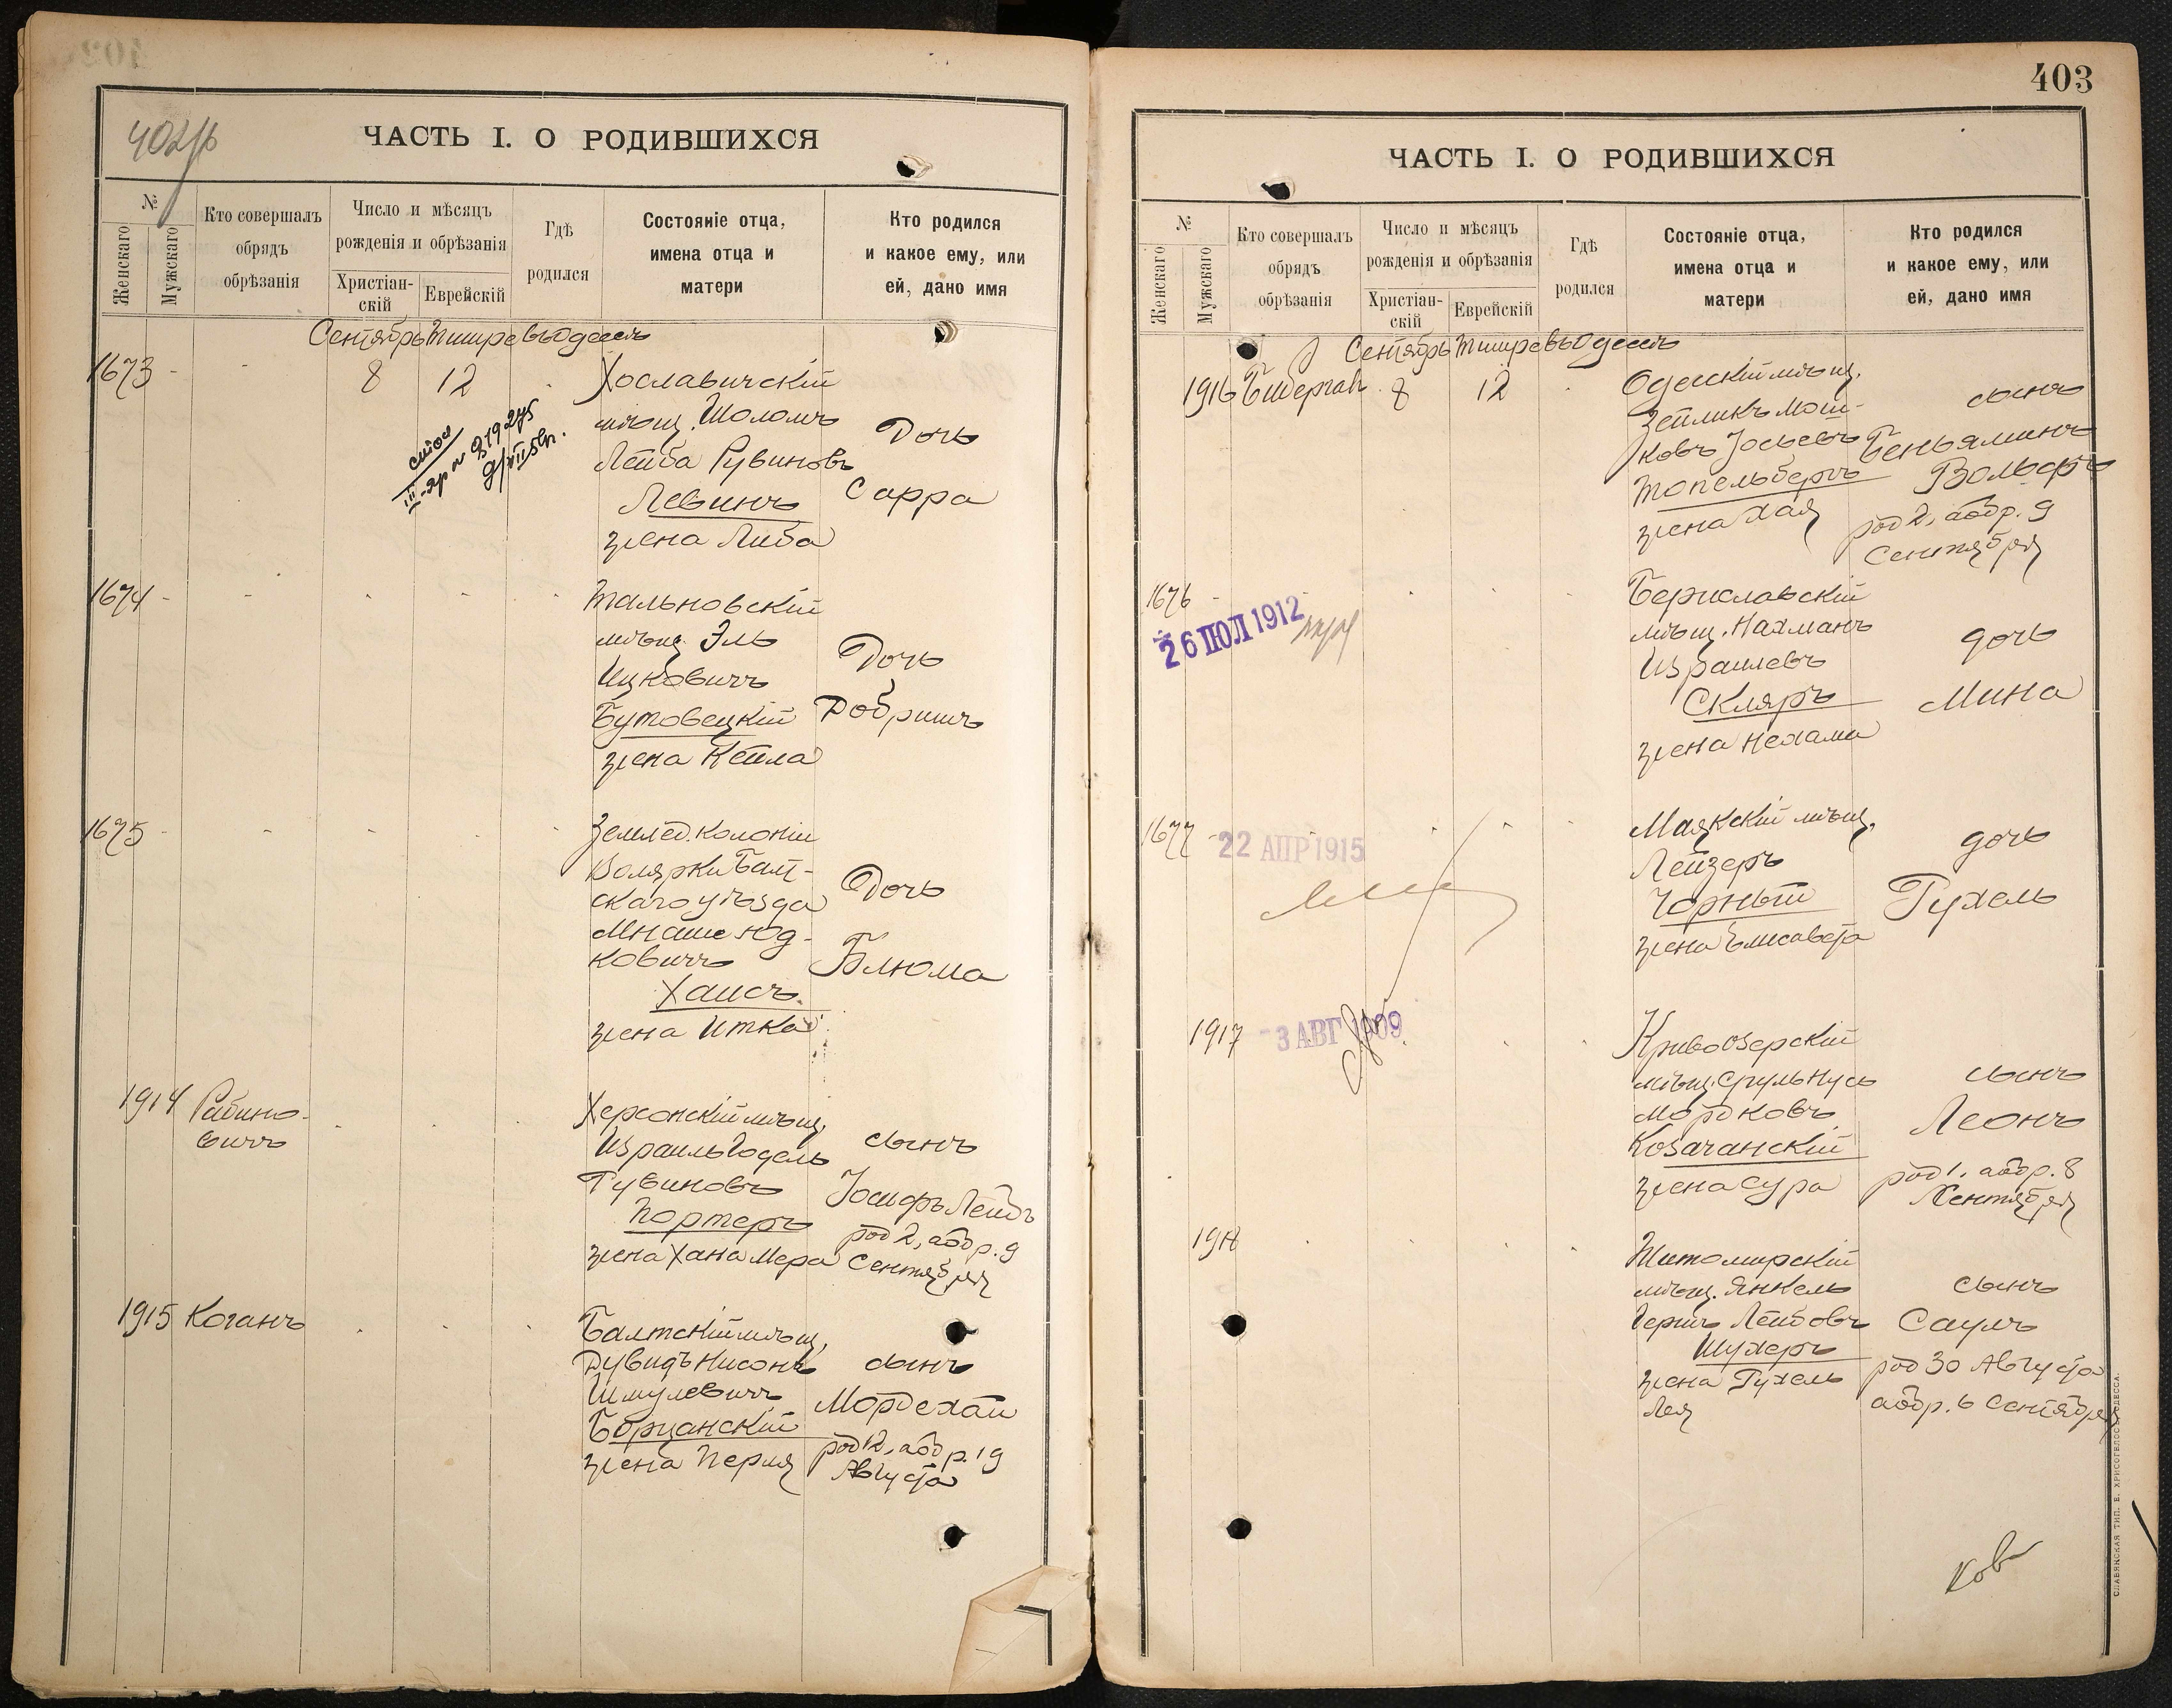 402/б
ЧАСТЬ I. О РОДИВШИХСЯ
№
Женскаго
Мужскаго
Кто совершалъ
обрядъ
обрѣзанія
Число и мѣсяцъ
рожденія и обрѣзанія
Христіан-
скій
Еврейскій
Гдѣ
родился
Состояніе отца,
имена отца и
матери
Кто родился
и какое ему, или
ей, дано имя
Сентябрь Тишре въ Одессѣ
1673 - - 8 12
Хославичскій
мѣщ. Шоломъ
Лейба Рувиновъ
Левинъ
жена Либа
Дочь
Сарра
1674
Тальновскій
мѣщ. Эль
Ицковичъ
Бутовецкій
жена Кейла
Дочь
Добришъ
1675
Землед. колоніи
Волярки Балт-
скаго уѣзда
Мнаше Юд-
ковичъ
Хаисъ
жена Итка
Дочь
Блюма
1914 Рабино-
вичъ
Херсонскій мѣщ.
Израиль Годель
Рувиновъ
Портеръ
жена Хана Мера
сынъ
Іосифъ Лейбъ
род 2, а обр. 9
Сентября
1915 Коганъ
Балтскій мѣщ.
Дувидъ Нисонъ
Шмулевичъ
Борщанскій
жена Перля
сынъ
Мордехай
род 12, а обр. 19
Августа
403
ЧАСТЬ I. О РОДИВШИХСЯ
№
Женскаго
Мужскаго
Кто совершалъ
обрядъ
обрѣзанія
Число и мѣсяцъ
рожденія и обрѣзанія
Христіан-
скій
Еврейскій
Гдѣ
родился
Состояніе отца,
имена отца и
матери
Кто родился
и какое ему, или
ей, дано имя
Сентябрь Тишре въ Одессѣ
1916 8 12
Одесскій мѣщ.
Зейликъ Мош-
ковъ Іосьевъ
Топельбергъ
жена Хая
сынъ
Беньяминъ
Вольфъ
род 2, а обр. 9
Сентября
1676
26 ІЮЛ 1912
Бериславскій
мѣщ. Нахманъ
Израилевъ
Скляръ
жена Нехама
дочь
Мина
1677
22 АПР 1915
Маякскій мѣщ.
Лейзеръ
Чорный
жена Елисавета
дочь
Рухель
1917
3 АВГ 1909
Кривоозерскій
мѣщ. Сруль Нусь
Мордковъ
Козачанскій
жена Сура
сынъ
Леонъ
род 1, а обр. 8
Сентября
1918
Житомирскій
мѣщ. Янкель
Гершъ Лейбовъ
Шухеръ
жена Рухель
Лея
сынъ
Саулъ
род 30 Августа
а обр. 6 Сентября
СЛАВЯНСКАЯ ТИП. Е. ХРИСОГЕЛОСЪ ОДЕССА.